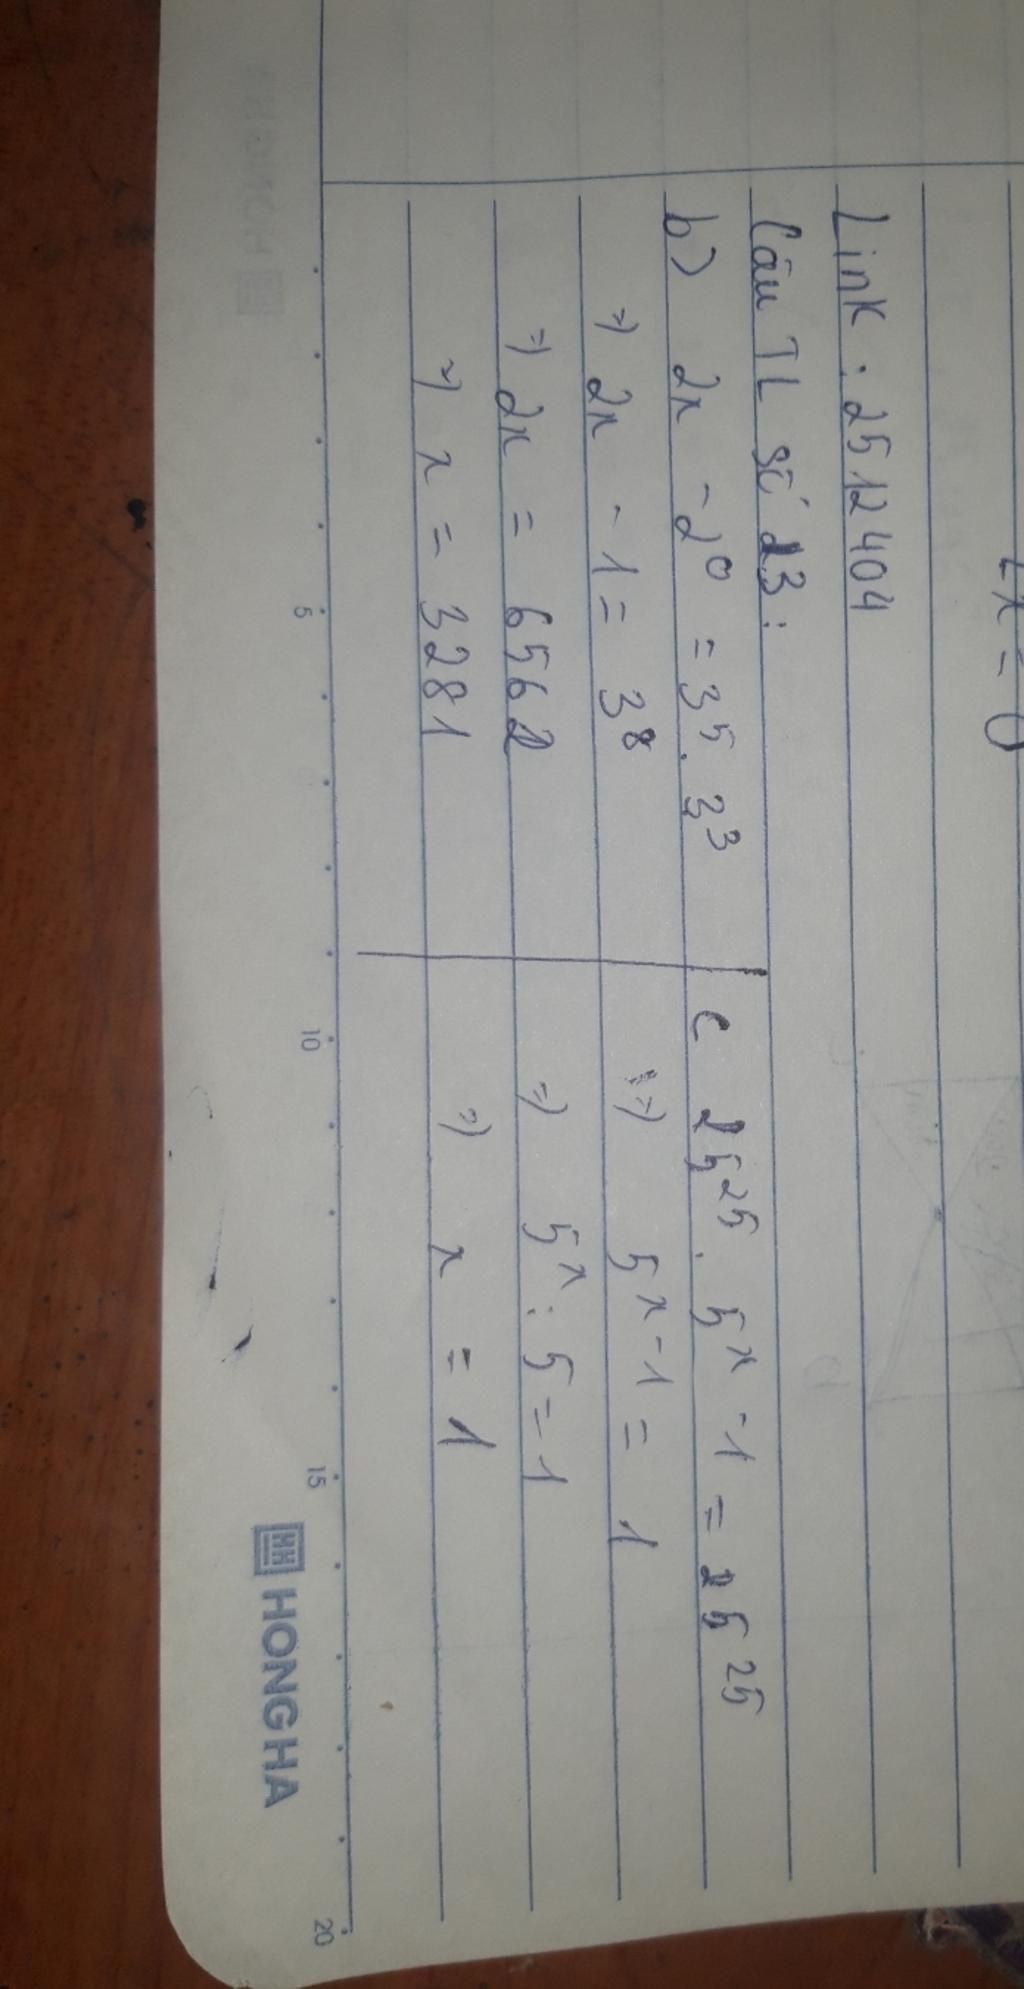 2x = 0
Link : 2512404
Câu TL số 23 :
b) 2x - 2⁰ = 3⁵ . 3³
=> 2x - 1 = 3⁸
=> 2x = 6562
=> x = 3281
c 25²⁵ . 5ˣ⁻¹ = 25²⁵
=> 5ˣ⁻¹ = 1
=> 5ˣ : 5 = 1
=> x = 1
5 10 15 20
HONGHA